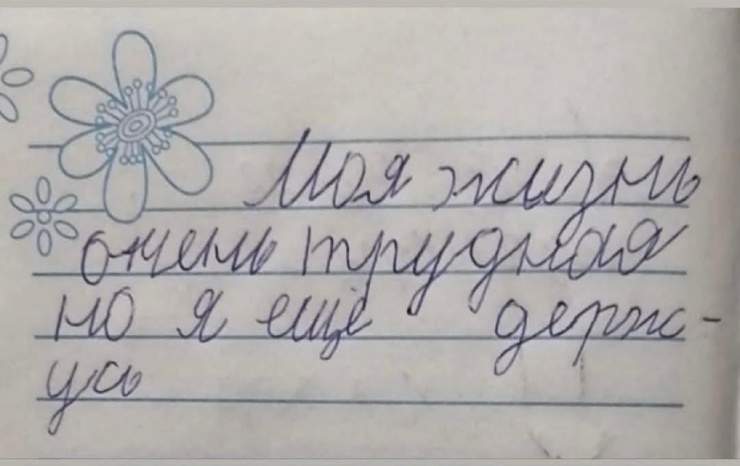 Моя жизнь
очень трудная
но я ещё держ-
усь